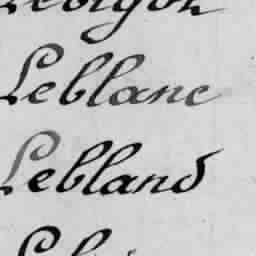 Leblanc
Lebland